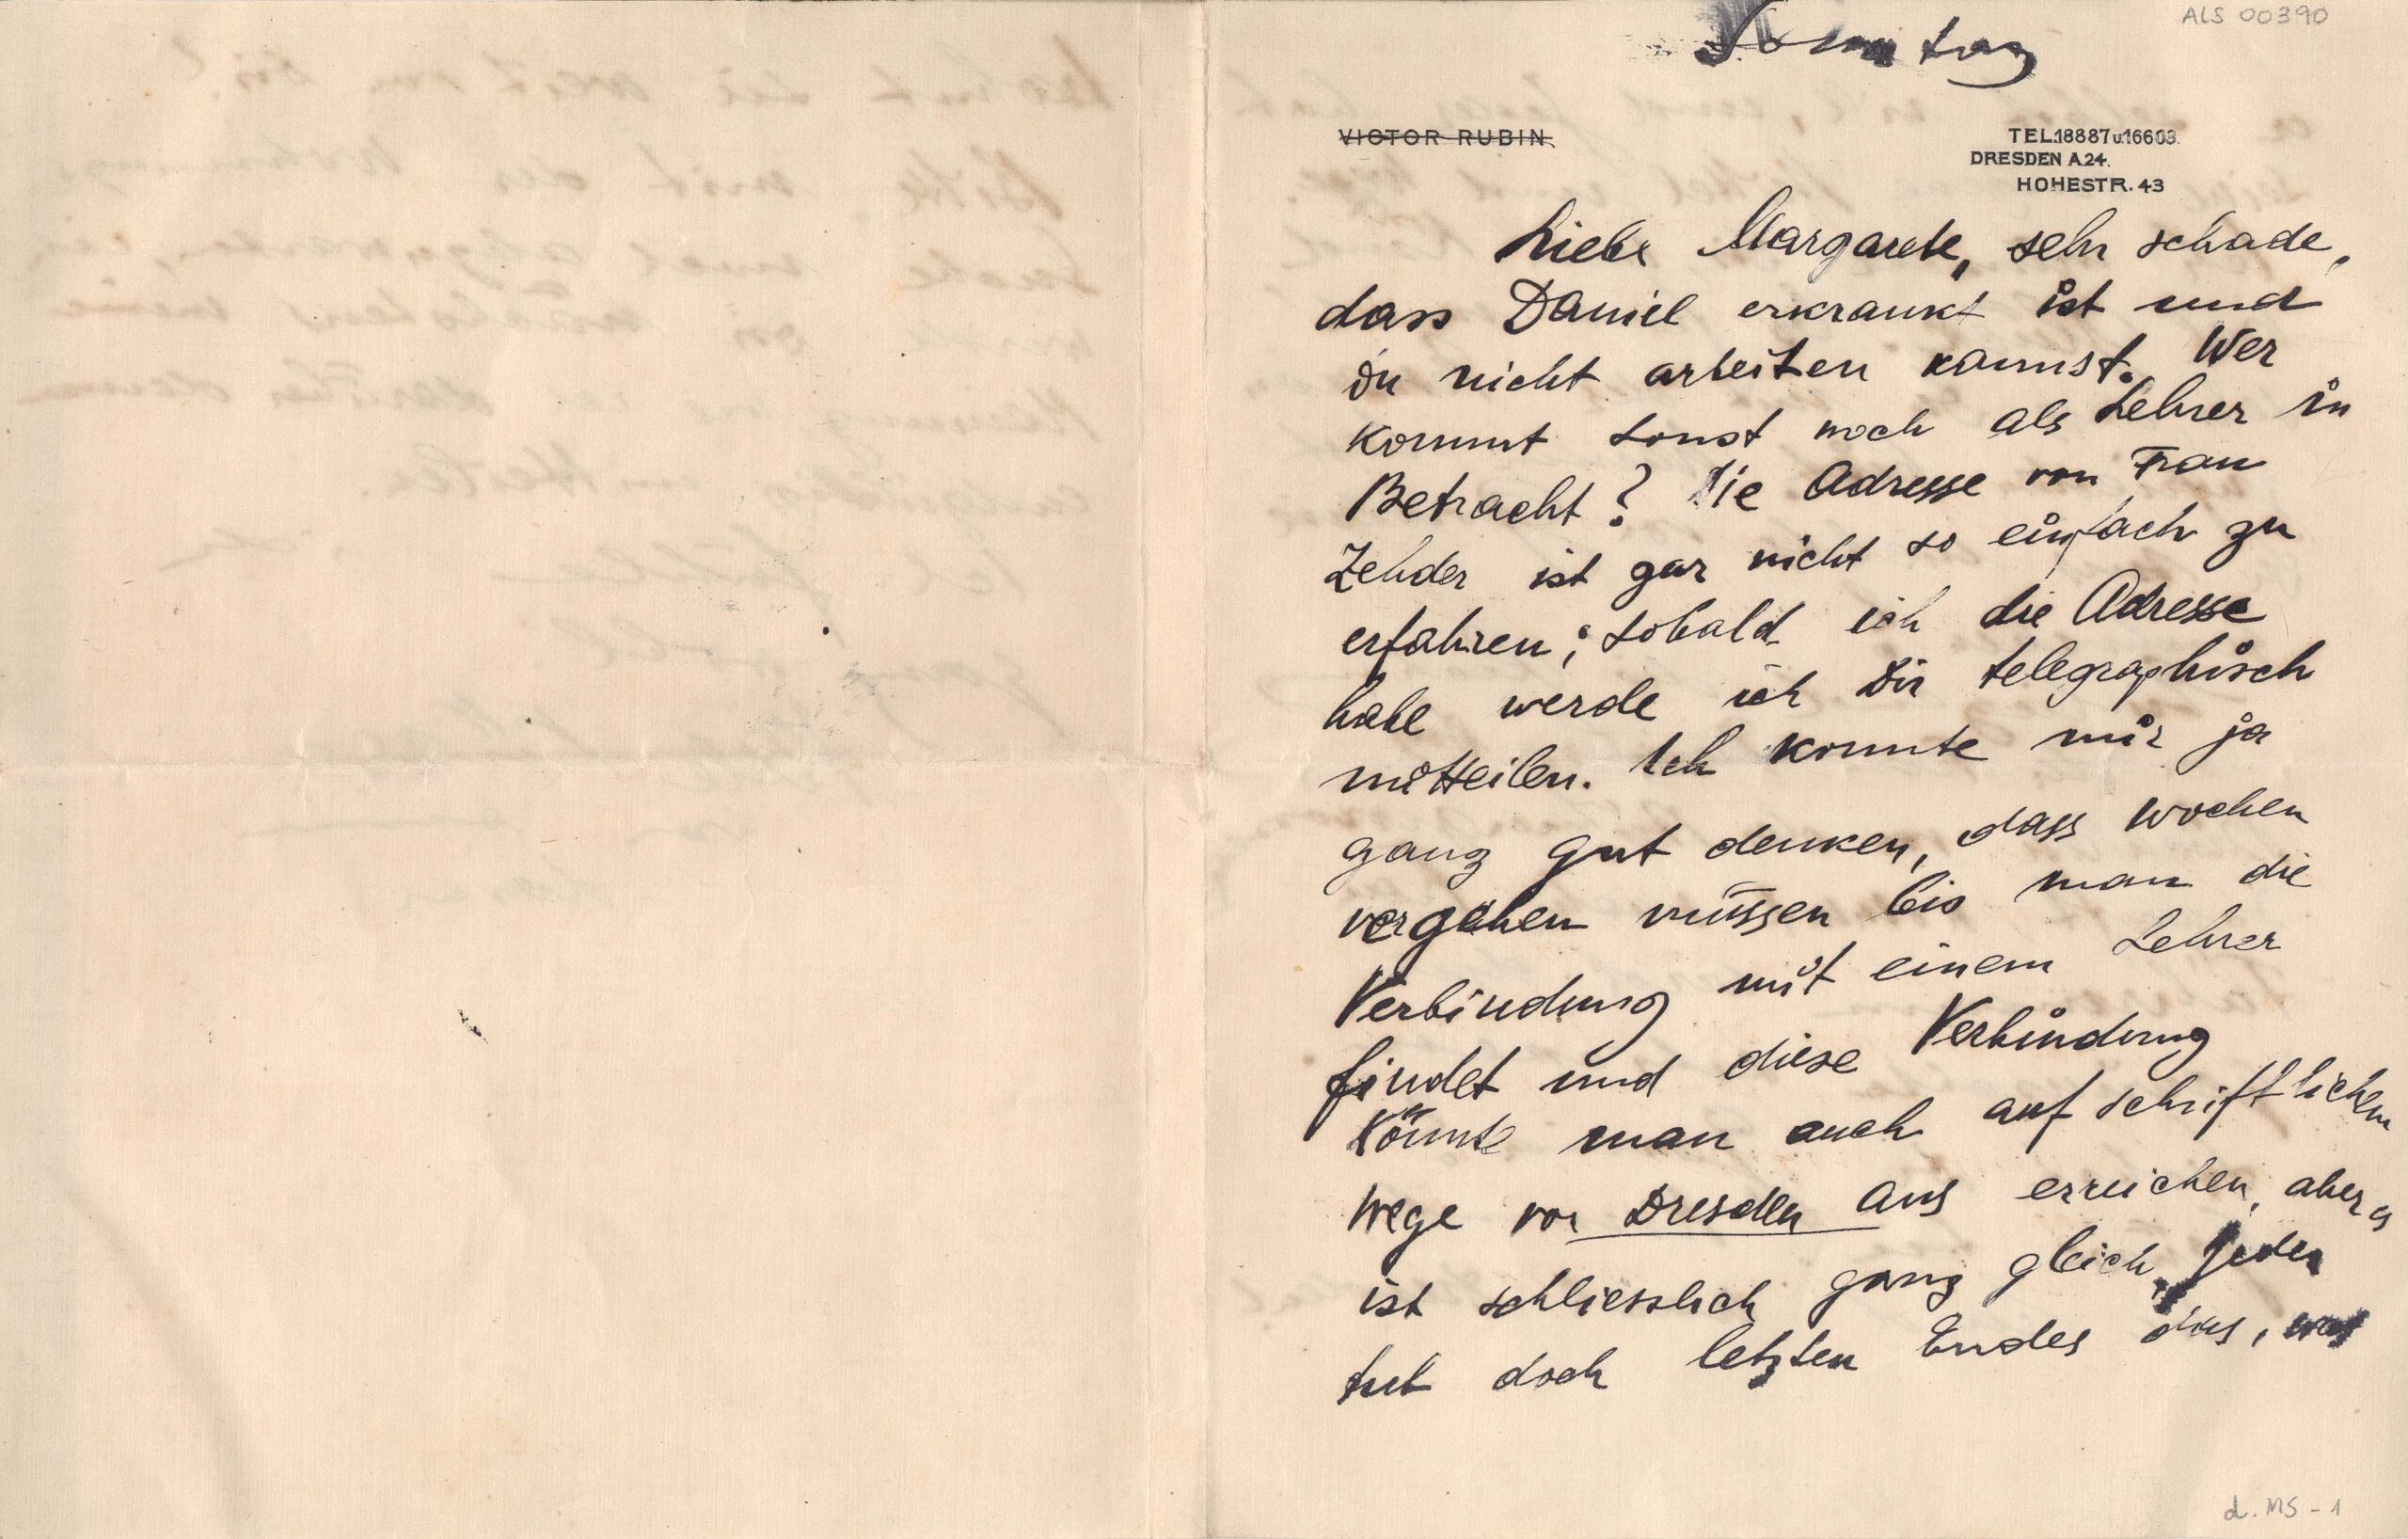 ALS 00390
Sonntag
VICTOR RUBIN
TEL.18887 u.16603.
DRESDEN A.24.
HOHESTR. 43
Liebe Margarete, sehr schade,
dass Daniel erkrankt ist und
Du nicht arbeiten kannst. Wer
kommt sonst noch als Lehrer in
Betracht? Die Adresse von Frau
Zehder ist gar nicht so einfach zu
erfahren; sobald ich die Adresse
habe werde ich Dir telegraphisch
mitteilen. Ich konnte mir ja
ganz gut denken, dass Wochen
vergehen müssen bis man die
Verbindung mit einem Lehrer
findet und diese Verbindung
könnte man auch auf schriftlichem
Wege von Dresden aus erreichen, aber es
ist schliesslich ganz gleich, jeder
tut doch letzten Endes das, was
d. MS - 1